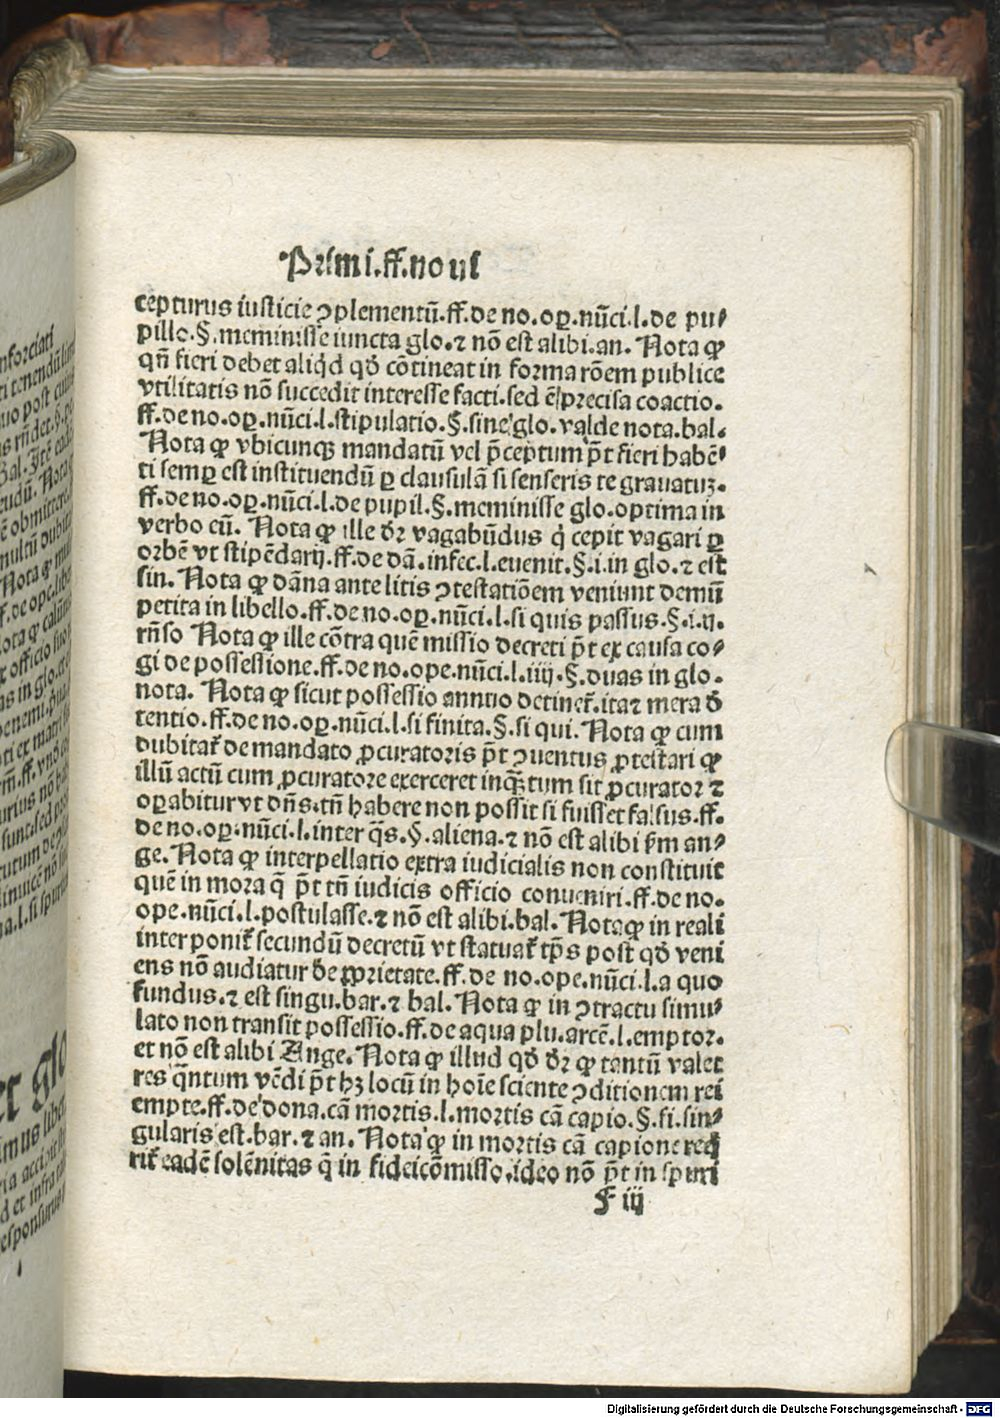 Primi.ff.noui
cepturus iusticie ꝯplementū.ff.de no.oꝑ.nūci.l.de pu⸗
pillo.§.meminisse iuncta glo.⁊ nō est alibi.an. Nota ꝙ
qñ fieri debet aliqd̓ qd̓ cōtineat in forma rōem publice
vtilitatis nō succedit interesse facti.sed ē precisa coactio.
ff.de no.oꝑ.nūci.l.stipulatio.§.sine glo.valde nota.bal.
Nota ꝙ vbicunqꝫ mandatū vel p̄ceptum p̄t fieri habē⸗
ti semꝑ est instituendū ꝑ clausulā si senseris te grauatuꝫ.
ff.de no.oꝑ.nūci.l.de pupil.§.meminisse glo.optima in
verbo cū. Nota ꝙ ille dr̄ vagabūdus q̇ cepit vagari ꝑ
orbē vt stipēdarij.ff.de dā.infec.l.euenit.§.i.in glo.⁊ est
sin. Nota ꝙ dāna ante litis ꝯtestatiōem veniunt demū
petita in libello.ff.de no.oꝑ.nūci.l.si quis passus.§.i.ij.
rn̄so Nota ꝙ ille cōtra quē missio decreti p̄t ex causa co⸗
gi de possessione.ff.de no.ope.nūci.l.iiij.§.duas in glo.
nota. Nota ꝙ sicut possessio animo detinet̄.ita⁊ mera d̓
tentio.ff.de no.oꝑ.nūci.l.si finita.§.si qui. Nota ꝙ cum
dubitat̄ de mandato ꝓcuratoris p̄t ꝯuentus ꝓtestari ꝙ
illū actū cum ꝓcuratore exerceret inq̄ꝫtum sit ꝓcurator ⁊
oꝑabitur vt dn̄s.tn̄ habere non possit si fuisset falsus.ff.
de no.oꝑ.nūci.l.inter q̄s.§.aliena.⁊ nō est alibi ẜm an⸗
ge. Nota ꝙ interpellatio extra iudicialis non constituit
quē in mora q̄ p̄t tn̄ iudicis officio conueniri.ff.de no.
ope.nūci.l.postulasse.⁊ nō est alibi.bal. Nota ꝙ in reali
interponit̄ secundū decretū vt statuat̄ tp̄s post qd̓ veni
ens nō audiatur de ꝓprietate.ff.de no.ope.nūci.l.a quo
fundus.⁊ est singu.bar.⁊ bal. Nota ꝙ in ꝯtractu simu⸗
lato non transit possessio.ff.de aqua plu.arcē.l.emptor.
et nō est alibi Ange. Nota ꝙ illud qd̓ dr̄ ꝙ tantū valet
res q̄ntum vēdi p̄t hꝫ locū in hoīe sciente ꝯditionem rei
empte.ff.de dona.cā mortis.l.mortis cā capio.§.fi.sin⸗
gularis est.bar.⁊ an. Nota ꝙ in mortis cā capione req̇
rit̄ eadē solēnitas q̄ in fideicōmisso.ideo nō p̄t in
F iij
Digitalisierung gefördert durch die Deutsche Forschungsgemeinschaft - DFG